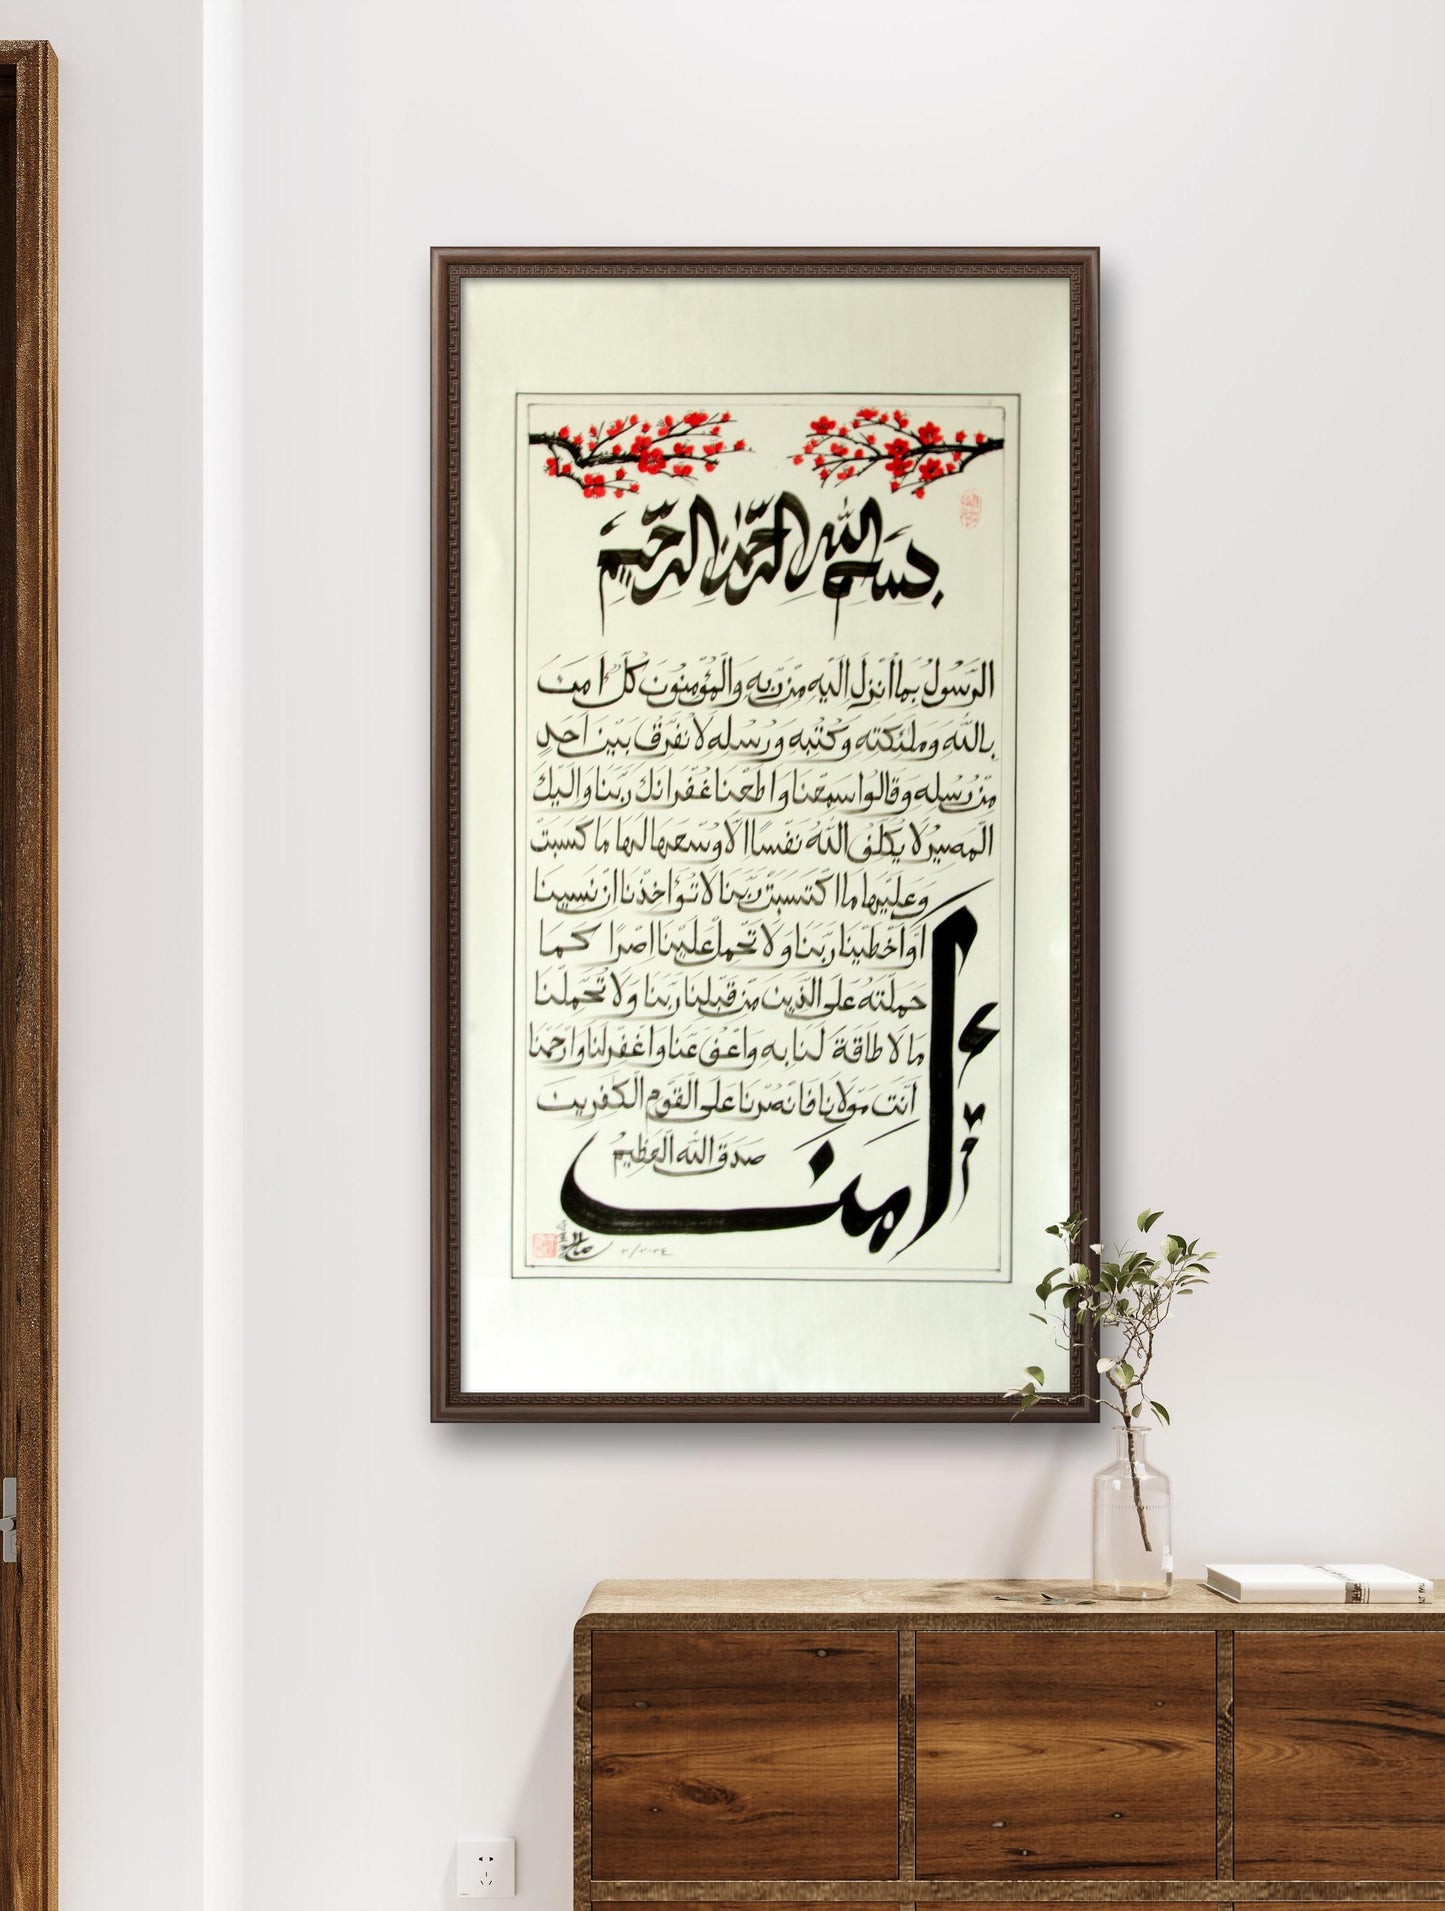 بسم الله الرحمن الرحيم
الرَّسُولُ بمَا أنْزلَ إلَيْهِ منْ رَّبهِ وَالْمُؤْمنُونَ كُلٌّ اٰمَنَ
باللهِ وَمَلئكَتهِ وَكُتُبهِ وَرُسُلهِ لَا نُفَرّقُ بَيْنَ اَحَدٍ
منْ رُسُلهِ وَقَالُوا سَمعْنَا وَاَطَعْنَا غُفْرَانَكَ رَبَّنَا وَالَيْكَ
الْمَصيْرُ لَا يُكَلّفُ اللهُ نَفْسًا الَّا وُسْعَهَا لَهَا مَا كَسَبَتْ
وَعَلَيْهَا مَا اكْتَسَبَتْ رَبَّنَا لَا تُؤَاخذْنَا انْ نَسينَا
اَوْ اَخْطَيْنَا رَبَّنَا وَلَا تَحْملْ عَلَيْنَا اصْرًا كَمَا
حَمَلْتَهُ عَلَى الَّذينَ منْ قَبْلنَا رَبَّنَا وَلَا تُحَمّلْنَا
مَا لَا طَاقَةَ لَنَا بهِ وَاعْفُ عَنَّا وَاغْفرْلَنَا وَارْحَمْنَا
اَنْتَ مَوْلَانَا فَانْصُرْنَا عَلَى الْقَوْمِ الْكٰفِرينَ
صَدَقَ اللهُ الْعَظِيمُ
أٰمَنَ
٢/٢٠٢٤